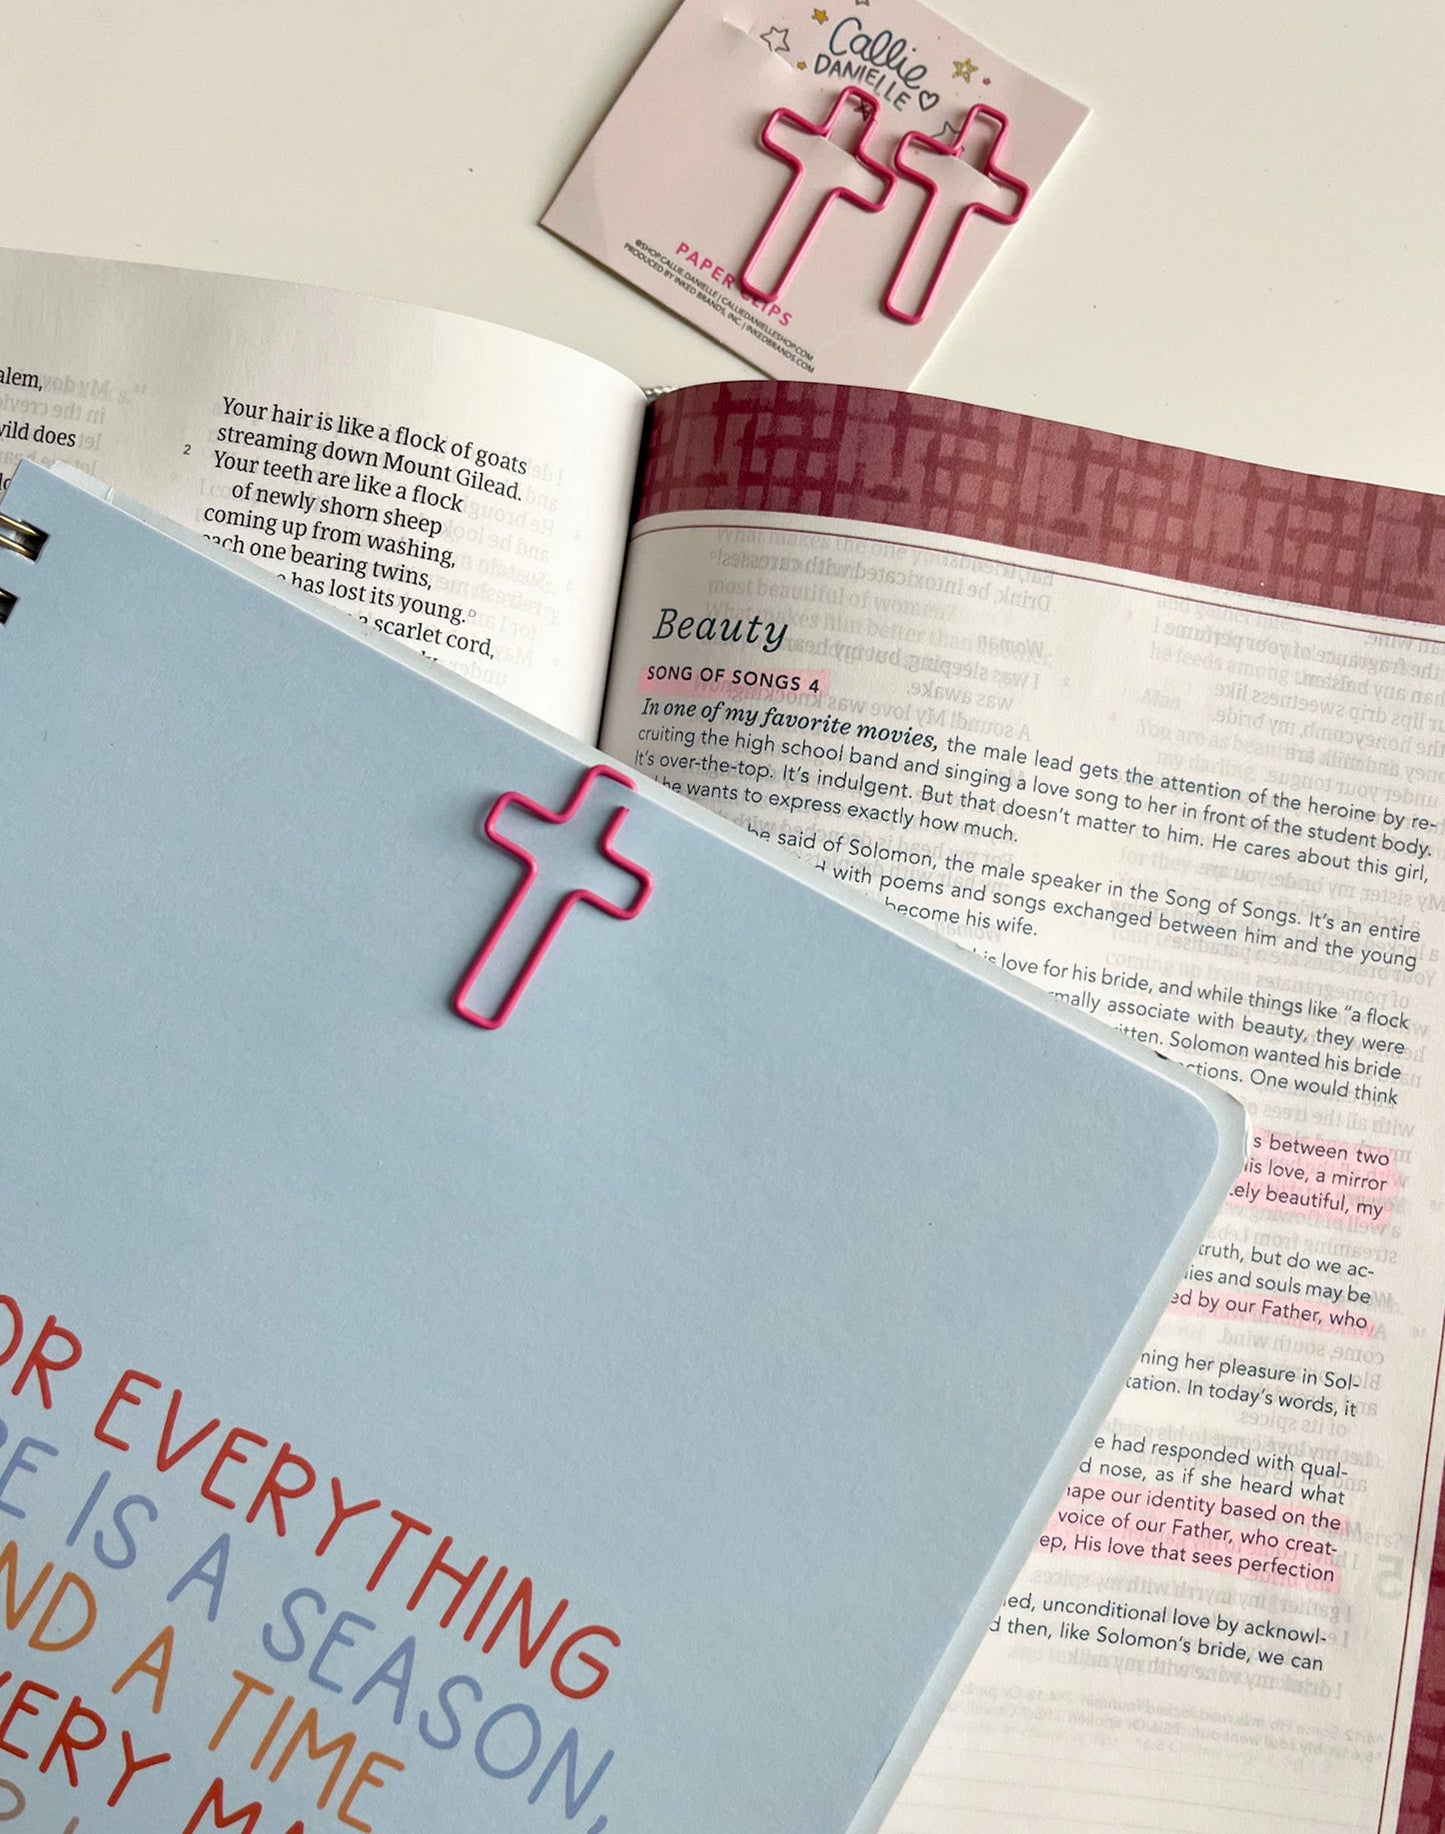 Callie
DANIELLE
PAPER CLIPS
@SHOP.CALLIE.DANIELLE | CALLIEDANIELLESHOP.COM
PRODUCED BY INKED BRANDS, INC | INKEDBRANDS.COM
alem,
wild does
Your hair is like a flock of goats
streaming down Mount Gilead.
2 Your teeth are like a flock
of newly shorn sheep
coming up from washing,
each one bearing twins,
has lost its young.
scarlet cord,
Beauty
SONG OF SONGS 4
In one of my favorite movies, the male lead gets the attention of the heroine by re-
cruiting the high school band and singing a love song to her in front of the student body.
It's over-the-top. It's indulgent. But that doesn't matter to him. He cares about this girl,
he wants to express exactly how much.
be said of Solomon, the male speaker in the Song of Songs. It's an entire
with poems and songs exchanged between him and the young
become his wife.
his love for his bride, and while things like "a flock
rmally associate with beauty, they were
itten. Solomon wanted his bride
ctions. One would think
s between two
is love, a mirror
ely beautiful, my
truth, but do we ac-
ies and souls may be
ed by our Father, who
ning her pleasure in Sol-
tation. In today's words, it
e had responded with qual-
d nose, as if she heard what
hape our identity based on the
voice of our Father, who creat-
ep, His love that sees perfection
ied, unconditional love by acknowl-
d then, like Solomon's bride, we can
OR EVERYTHING
RE IS A SEASON,
ND A TIME
VERY MA